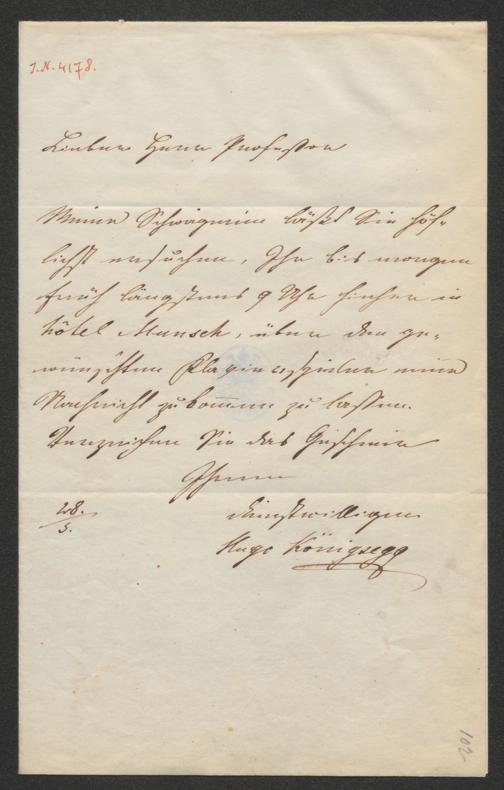 J.N. 4178.
Lieber Herr Professor
Meine Schwägerinn läßt Sie höf-
lichst ersuchen, Ihr bis morgen
früh längstens 9 Uhr hieher in
hôtel Munsch, über den ge-
wünschten Klavierspieler eine
Nachricht zukommen zu lassen.
Verzeihen Sie das
Ihrem
dienstwilligen
28.
5.
Hugo Königsegg
102